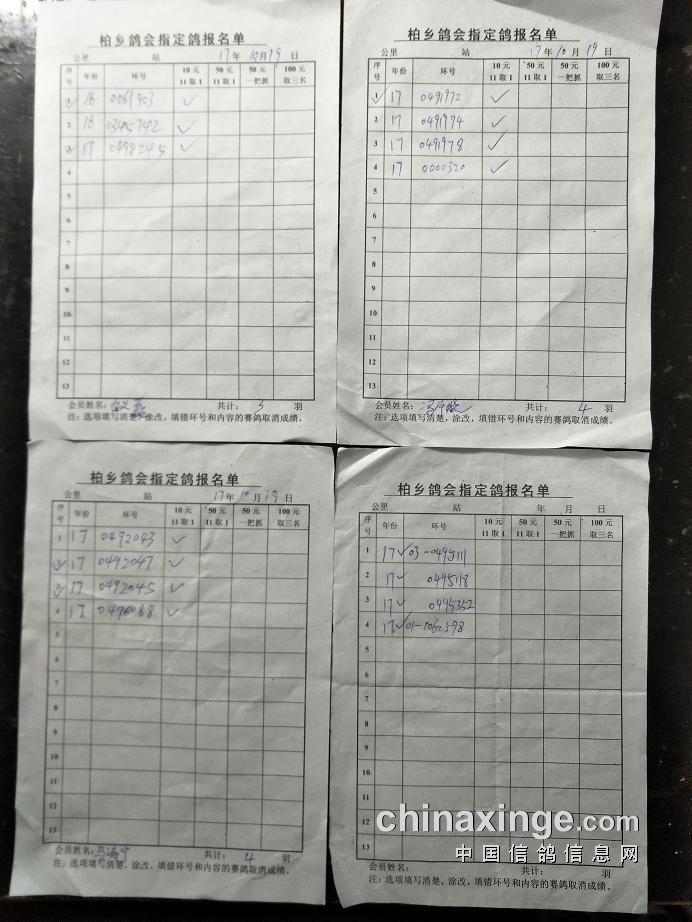 柏乡鸽会指定鸽报名单
公里 站 17年 10月 19日
序号 年份 环号 10元 11取1 50元 11取1 50元 一把抓 100元 取三名
1 16 0061903 ✓
2 16 0345742 ✓
3 17 0498245 ✓
4
5
6
7
8
9
10
11
12
13
会员姓名: 共计: 3 羽
注: 选项填写清楚, 涂改, 填错环号和内容的赛鸽取消成绩。
柏乡鸽会指定鸽报名单
公里 站 17年 10月 19日
序号 年份 环号 10元 11取1 50元 11取1 50元 一把抓 100元 取三名
1 17 0491972 ✓
2 17 0491974 ✓
3 17 0491978 ✓
4 17 0000320 ✓
5
6
7
8
9
10
11
12
13
会员姓名: 共计: 4 羽
注: 选项填写清楚, 涂改, 填错环号和内容的赛鸽取消成绩。
柏乡鸽会指定鸽报名单
公里 站 17年 10月 19日
序号 年份 环号 10元 11取1 50元 11取1 50元 一把抓 100元 取三名
1 17 0492043 ✓
2 17 0492047 ✓
3 17 0492045 ✓
4 17 0496068 ✓
5
6
7
8
9
10
11
12
13
会员姓名: 共计: 4 羽
注: 选项填写清楚, 涂改, 填错环号和内容的赛鸽取消成绩。
柏乡鸽会指定鸽报名单
公里 站 年 月 日
序号 年份 环号 10元 11取1 50元 11取1 50元 一把抓 100元 取三名
1 17 ✓ 03-0495111
2 17 ✓ 0495118
3 17 ✓ 0495352
4 17 ✓ 01-1062598
5
6
7
8
9
10
11
12
13
会员姓名: 共计: 羽
注: 选项填写清楚, 涂改, 填错环号和内容的赛鸽取消成绩。
chinaxinge.com
中国信鸽信息网